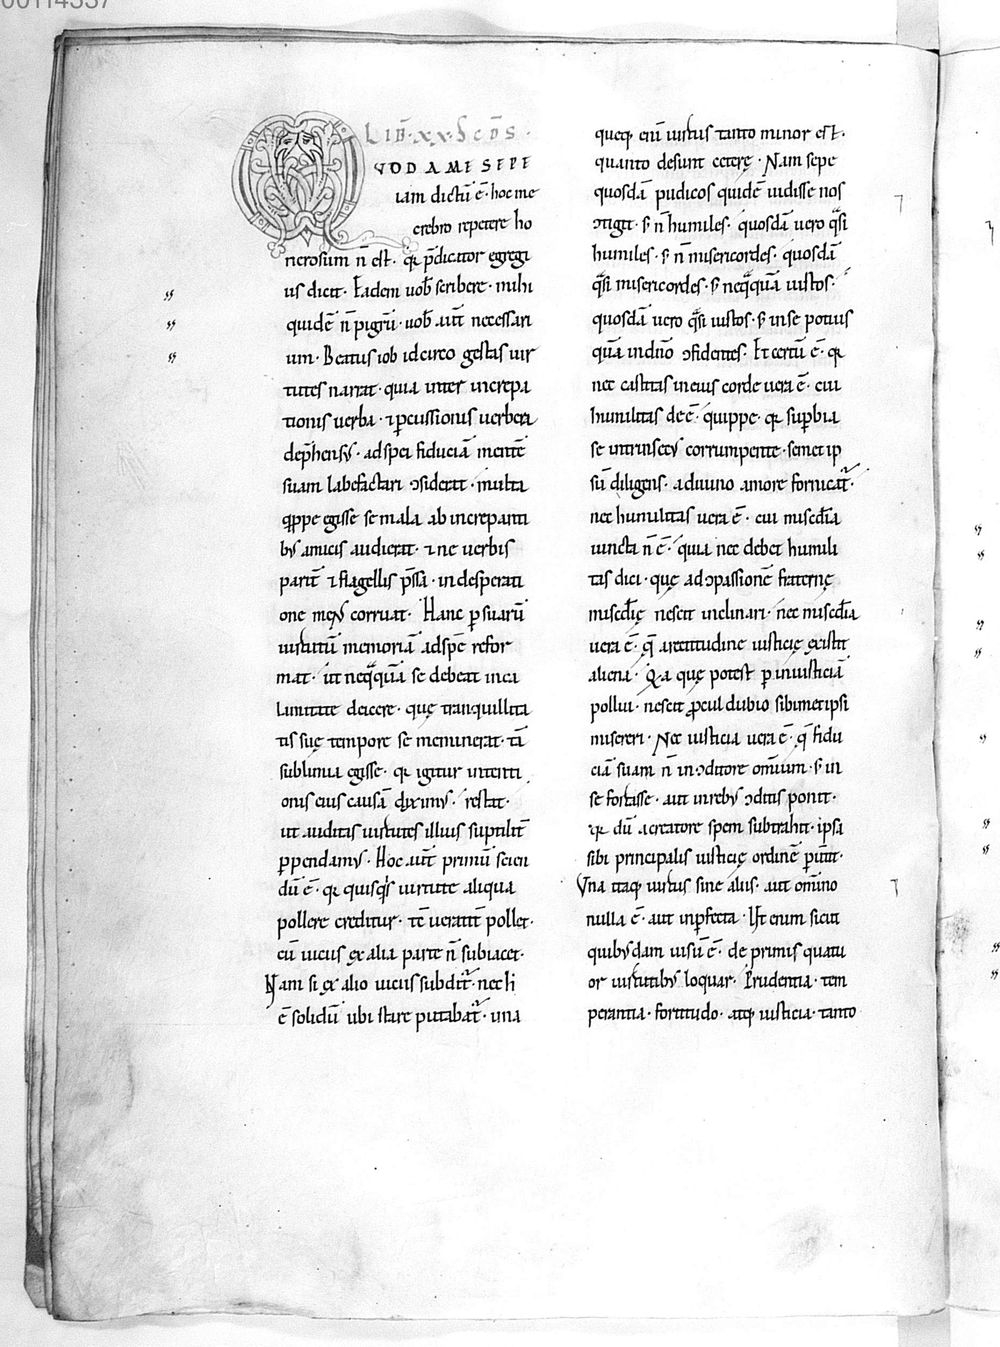 LIB̄·XX·Scd̄s·
QVOD A ME SEPE
iam dictū ē· hoc me
crebro repetere ho
nerosum n̄ est. qr p̄dicator egregi
us dicit. Eadem uob̄ scribere· mihi
quidē n̄ pigrū· uob̄ aut̄ necessari
um. Beatus iob idcirco gestas uir
tutes narrat· quia inter increpa
tionis uerba· ⁊ ꝑcussionis uerbera
dep̄hensꝰ· ad spei fiduciā mentē
suam labefactari ↄsiderat· multa
quippe egisse se mala ab increpanti
bꝰ amicis audierat· ⁊ ne uerbis
parit̄ ⁊ flagellis p̄ssa· in desperati
one mens corruat. Hanc ꝑ suarū
uirtutū memoriā ad spē refor
mat· ut neq̄quā se debeat in ca
lamitate deicere· quę tranquillita
tis suę tempore se meminerat· tā
sublimia egisse. qr igitur intenti
onis eius causā diximꝰ· restat·
ut auditas uirtutes illius suptilit̄
ꝑpendamꝰ. Hoc aut̄ primū scien
dū ē· qr quisquis uirtute aliqua
pollere creditur· tc̄ ueraciter pollet·
cū uiciis ex alia parte n̄ subiacet.
Nam si ex alio uiciis subditur· nec li
ē solidū ubi stare putabat̄· una
queq; eni uirtus tanto minor est·
quanto desunt ceterę. Nam sepe
quosdā pudicos quidē uidisse nos
ↄtigit· s; n̄ humiles· quosdā uero q̄si
humiles· s; n̄ misericordes· quosdā
q̄si misericordes· s; neq̄quā iustos·
quosdā uero q̄si iustos· s; in se potius
quā in dn̄o ↄfidentes. Et certū ē· qr
nec castitas in eius corde uera ē· cui
humilitas deē· quippe· qr suꝑbia
se intrinsecꝰ corrumpente· semetip
sū diligens· a diuino amore fornicat̄·
nec humilitas uera ē· cui misc̄dia
iuncta n̄ ē· quia nec debet humili
tas dici· quę ad ↄpassionē fraternę
misc̄dię nescit inclinari· nec misc̄dia
uera ē· q̄ a rectitudine iusticię existit
aliena· Qa quę potest ꝑ iniusticiā
pollui· nescit ꝓcul dubio sibimetipsi
misereri. Nec iusticia uera ē· q̄ fidu
ciā suam n̄ in ↄditore omīum· s; in
se fortasse· aut in rebꝰ ↄditis ponit·
qr dū a creatore spem subtrahit· ipsa
sibi principalis iusticię ordinē ꝑimit·
Una itaq; uirtus sine aliis· aut om̄ino
nulla ē· aut inperfecta. Vt enim sicut
quibꝰdam uisū ē· de primis quatu
or uirtutibꝰ loquar· Prudentia· tem
perantia· fortitudo· atq; iusticia· tanto